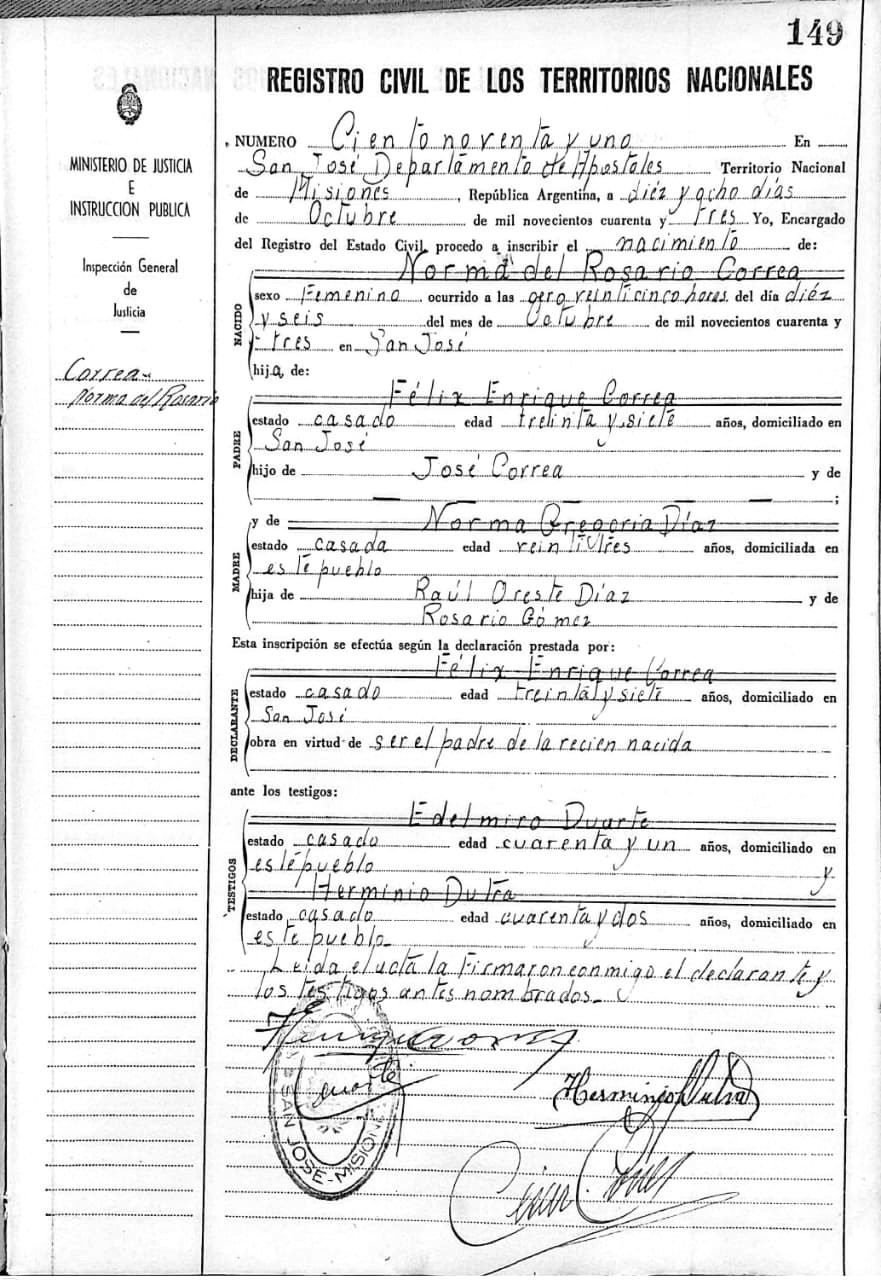 149
REGISTRO CIVIL DE LOS TERRITORIOS NACIONALES
MINISTERIO DE JUSTICIA
E
INSTRUCCION PUBLICA
Inspección General
de
Justicia
Correa
Norma del Rosario
NUMERO Ciento noventa y uno En
San José Departamento de Apostoles Territorio Nacional
de Misiones, República Argentina, a diéz y ocho días
de Octubre de mil novecientos cuarenta y tres Yo, Encargado
del Registro del Estado Civil, procedo a inscribir el nacimiento de:
Norma del Rosario Correa
NACIDO
sexo Femenino ocurrido a las cero veinticinco hores del día diéz
y seis del mes de Octubre de mil novecientos cuarenta y
tres en San José
hija de:
PADRE
Félix Enrique Correa
estado casado edad treinta y siete años, domiciliado en
San José
hijo de José Correa y de
;
MADRE
y de Norma Gregoria Díaz
estado casada edad veintitres años, domiciliada en
este pueblo
hija de Raúl Oreste Díaz y de
Rosario Gómez
Esta inscripción se efectúa según la declaración prestada por:
DECLARANTE
Félix Enrique Correa
estado casado edad treinta y siete años, domiciliado en
San José
obra en virtud de ser el padre de la recien nacida
ante los testigos:
TESTIGOS
Edelmiro Duarte
estado casado edad cuarenta y un años, domiciliado en
este pueblo y
Herminio Dutra
estado casado edad cuarenta y dos años, domiciliado en
este pueblo
Leida el acta la Firmaron conmigo el declarante y
los testigos antes nombrados
Duarte
Herminio Dutra
SAN JOSE - MISIONES